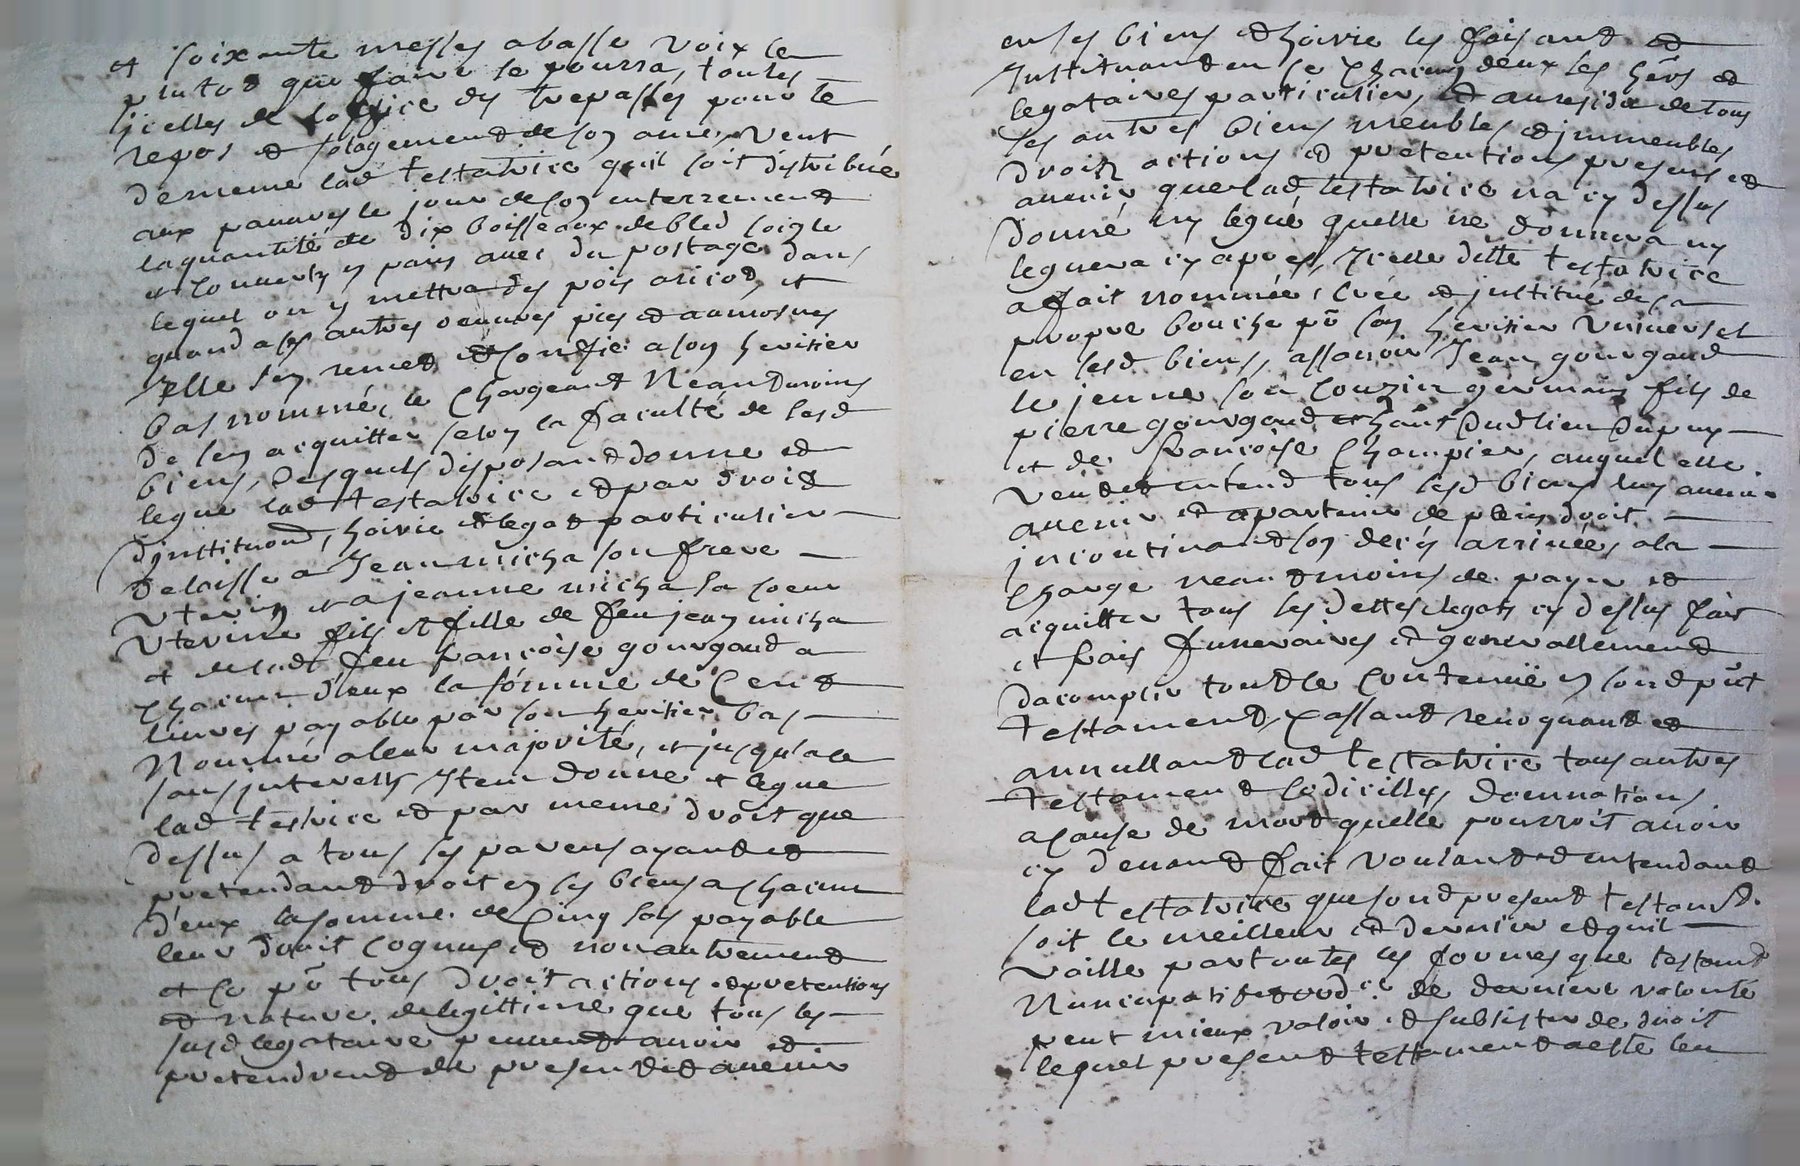 et soixante messes a basse voix le
plutot que faire se pourra, toutes
icelles de loffice des trepasses pour le
repos et solagement de son ame, veut
de meme lad testatrice quil soit distribuée
aux pauvres le jour de son enterrement
la quantité de dix boisseaux de bled soigle
et convertis en pain avec du postage dans
lequel on y mettra des pois aricod, et
quand a ses autres oeuvres pies et aumosnes
Elle sen remet et confie a son heritier
bas nommé, le chargeant Neantmoins
de sen acquitter selon la faculté de sesd
biens, desquels disposant donne et
legue lad testatrice et par droit
dinstituon, hoirie et legat particulier
Delaisse a Jean micha son frere
uterin et a jeanne micha sa soeur
uterine fils et fille de feu jean micha
et de lad feu francoise gourgaud a
chacun d'eux la somme de Cent
livres payable par son heritier bas
Nommé a leur majorité, et jusqu'a ce
sans jnterests Item donne et legue
lad testrice et par meme droit que
dessus a tous ses parens ayant et
pretendant droit en ses biens a chacun
d'eux la somme de Cinq sols payable
leur droit cognus et non autrement
et ce po tous droit actions et pretentions
et nature de legittime que tous les
susd legataire peuvent avoir et
pretendrent de present et avenir
en ses biens et hoirie les faisant et
Instituant en ce chacun deux ses hers et
legataires particulier, et au residu de tous
ses autres biens meubles et jmmeubles
droitz actions et pretentions presens et
avenir que lad testatrice na cy dessus
donné ny legué quelle ne donnera ny
leguera cy apres, Icelle ditte testatrice
a fait nommée, créé et jnstitué de sa
propre bouche po son heritier universel
en sesd biens, assavoir Jean gourgaud
le jeune son couzin germain fils de
pierre gourgaud dud lieu Dupuy
et de francoise Champier, auquel elle
veut et entend tous sesd biens luy avenir
avenir et apartenir de plein droit
jncontinant son deces arrivée, a la
charge neantmoins de payer et
acquitter tous ses dettes legats cy dessus fait
et frais funeraires et generallement
dacomplir tout le Contenüe en sond pnt
testament, Cassant revoquant et
annullant lad testatrice tous autres
testament Codicilles, donnations
a cause de mort quelle pourroit avoir
cy devant fait voulant et entendant
lad testatrice que sond present testamt
soit le meilleur et dernier et quil
vaille par toutes les formes que testamt
Nuncupatif et ordce de derniere volonté
peut mieux valoir et subsister de droit
lequel present testament a esté leu